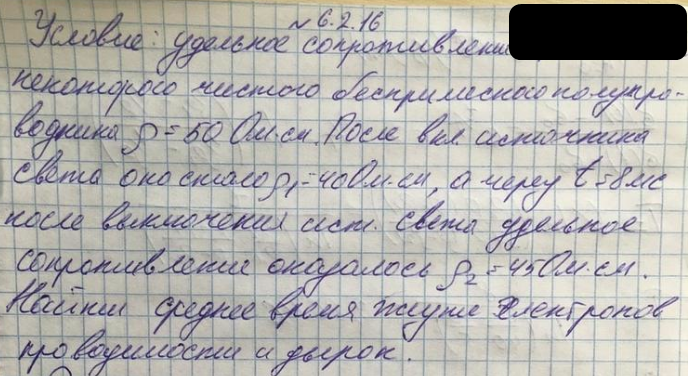 № 6.2.16
Условие: удельное сопротивление
некоторого чистого беспримесного полупро-
водника ρ = 50 Ом·см. После вкл. источника
света оно стало ρ₁=40 Ом·см, а через t=8 мс
после выключения ист. света удельное
сопротивление оказалось ρ₂=45 Ом·см.
Найти среднее время жизни электронов
проводимости и дырок.